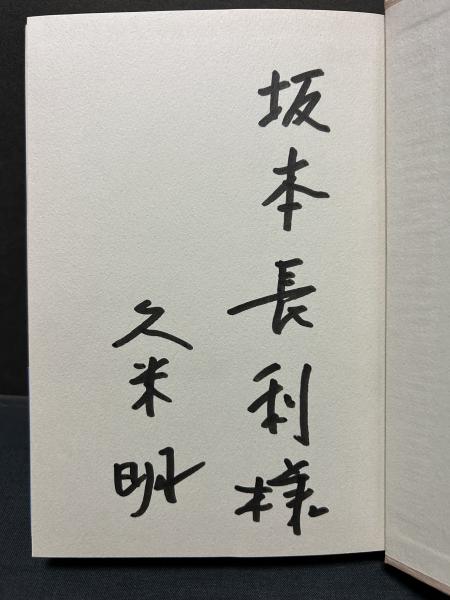 坂本長利様
久米明